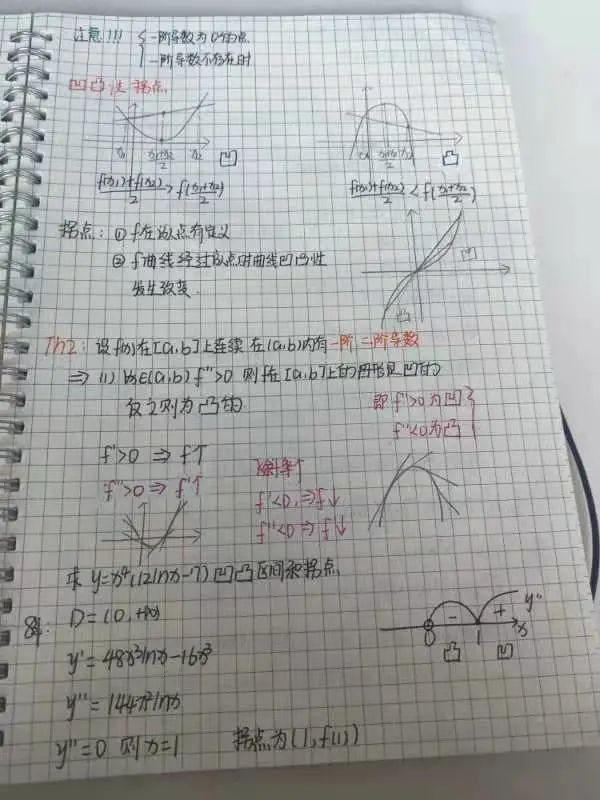 注意!!! { 一阶导数为0的点
一阶导数不存在时
凹凸性 拐点
x₁ (x₁+x₂)/2 x₂ 凹
x₁ (x₁+x₂)/2 x₂ 凸
(f(x₁)+f(x₂))/2 > f((x₁+x₂)/2)
(f(x₁)+f(x₂))/2 < f((x₁+x₂)/2)
拐点: ① f在该点有定义
② f曲线经过该点时曲线凹凸性
发生改变.
凹
凸
Th2: 设f(x)在[a,b]上连续 在(a,b)内有一阶 二阶导数
⇒ (1) ∀x∈(a,b) f''>0 则f在[a,b]上的图形是凹的
反之则为凸的
即 f''>0为凹
f''<0为凸 }
f'>0 ⇒ f↑
f''>0 ⇒ f'↑
f'<0, ⇒ f↓
f''<0 ⇒ f'↓
求 y=x⁴(12lnx-7) 凹凸区间和拐点
解: D=(0,+∞)
y'=48x³lnx-16x³
y''=144x²lnx
y''=0 则x=1 拐点为(1,f(1))
0 - 1 + y'' x
凸 凹